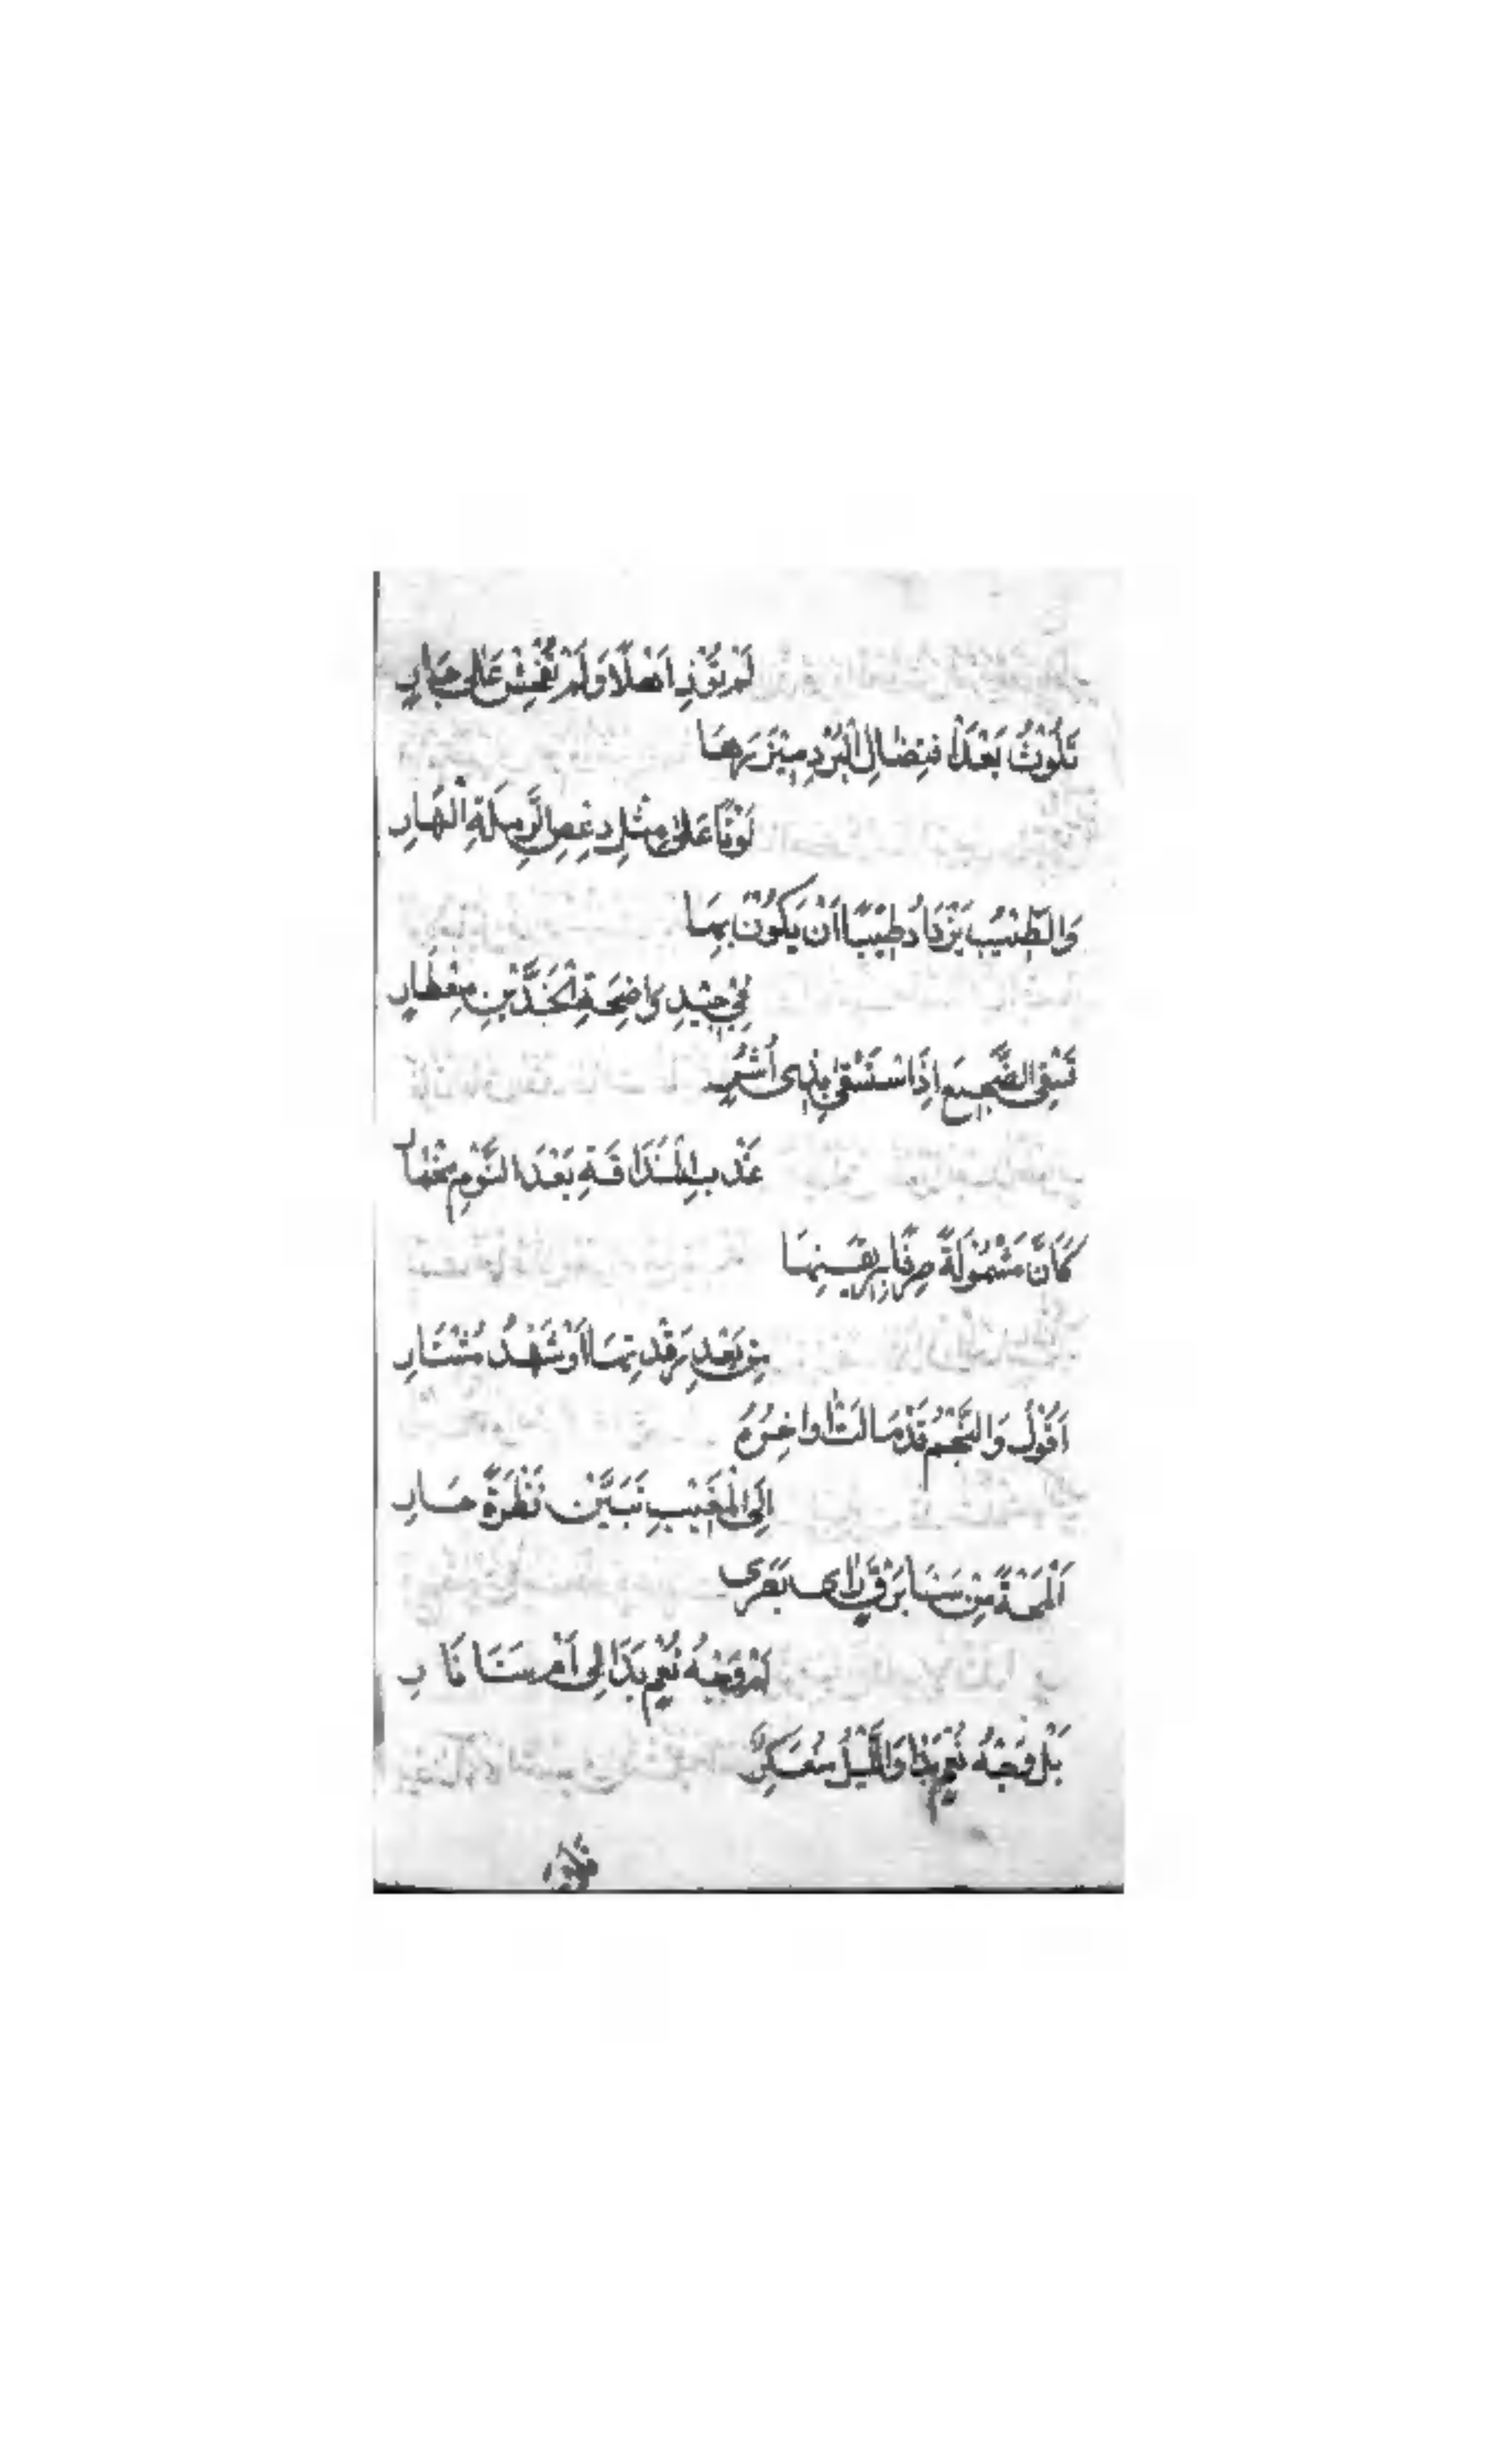 لَمْ تُؤْذِ اَهْلًا وَلَمْ تُفْحِشْ عَلَى جَارِ
تَلُوثُ بَعْدَ افْتِضَالِ الْبُرْدِ مِئْزَرَهَا
لَوْثًا عَلَى مِثْلِ دِعْصِ الرَّمْلَةِ الْهَارِ
وَالطِّيْبُ يَزْدَادُ طِيْبًا اَنْ يَكُوْنَ بِهَا
فِيْ جِيْدِ وَاضِحَةِ الْخَدَّيْنِ مِعْطَارِ
تَسْقِى الضَّجِيْعَ اِذَا اسْتَسْقَى بِذِى اُشُرٍ
عَذْبِ الْمَذَاقَةِ بَعْدَ النَّوْمِ مِخْمَارِ
كَاَنَّ مَشْمُوْلَةً صِرْفًا بِرِيْقَتِهَا
مِنْ بَعْدِ رَقْدَتِهَا اَوْ شَهْدُ مُشْتَارِ
اَقُوْلُ وَالنَّجْمُ قَدْ مَالَتْ اَوَاخِرُهُ
اِلَى الْمَغِيْبِ تَبَيَّنْ نَظْرَةً حَارِ
اَلَمْحَةً مِنْ سَنَا بَرْقٍ رَاٰى بَصَرِى
اَمْ وَجْهُ نُعْمٍ بَدَا لِى اَمْ سَنَا نَارِ
بَلْ وَجْهُ نُعْمٍ بَدَا وَاللَّيْلُ مُعْتَكِرٌ